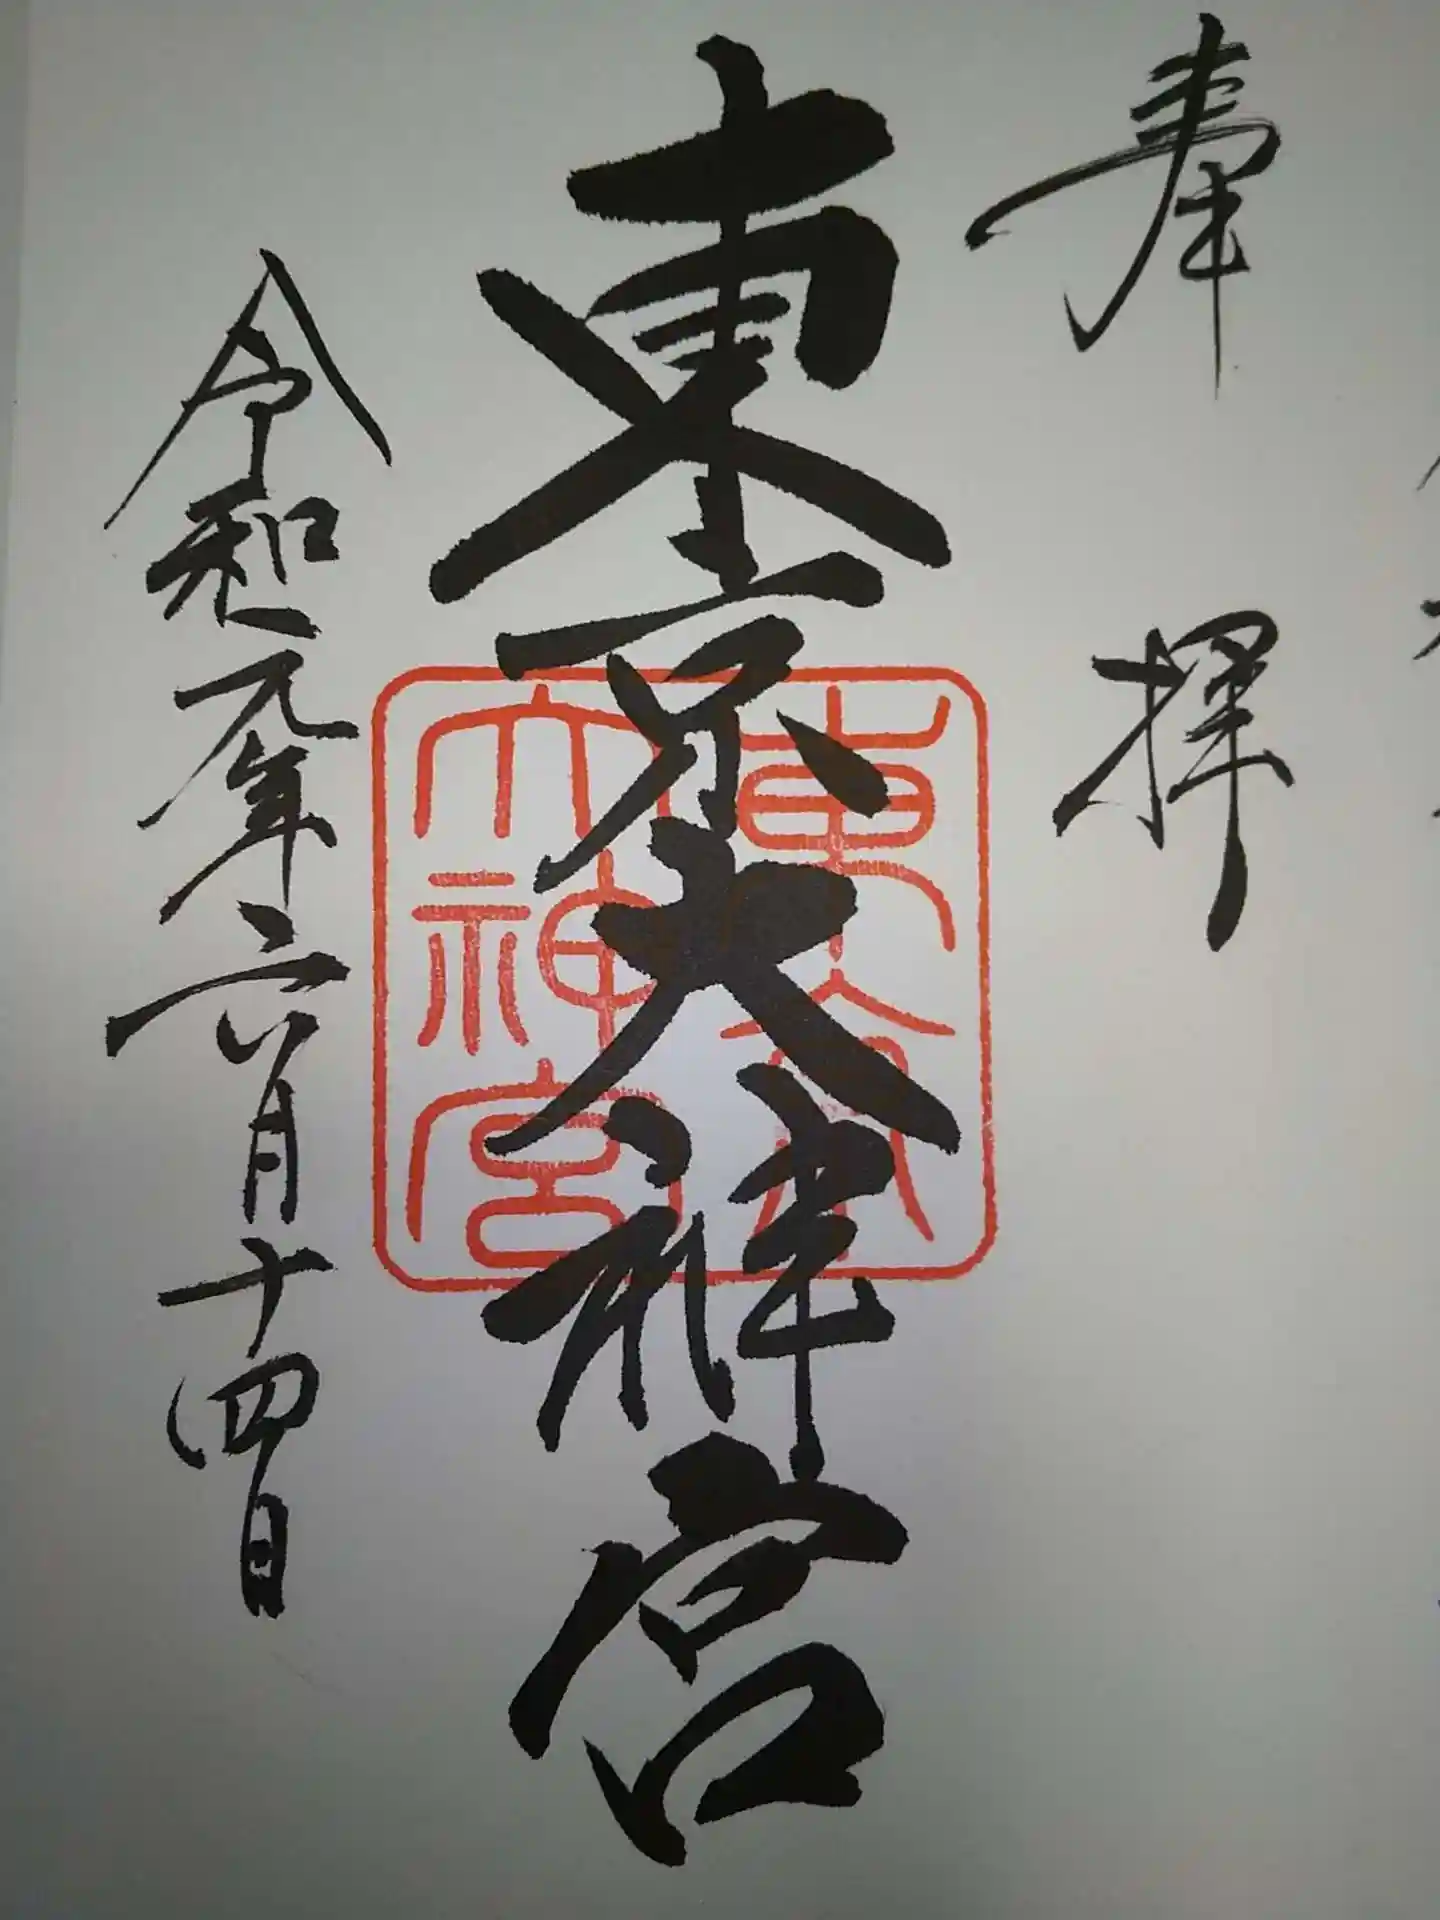 奉拝
東京大神宮
東京
大神宮
令和元年六月十四日